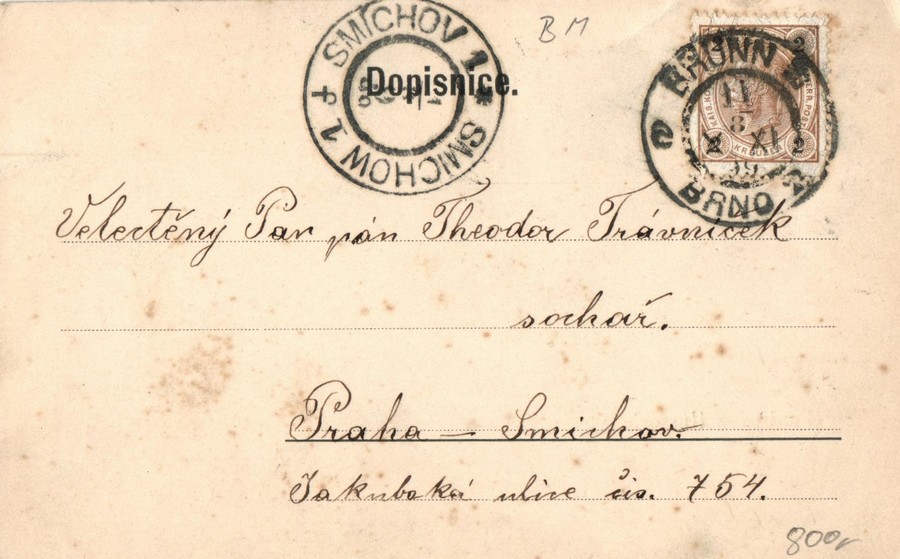 BM
SMÍCHOV 1. * SMICHOW 1
Dopisnice.
BRÜNN
BRNO
2 2
KREUZER
11
8
XI
Velectěný Pan pán Theodor Trávníček
sochař.
Praha – Smichov.
Jakubská ulice čis. 754.
800